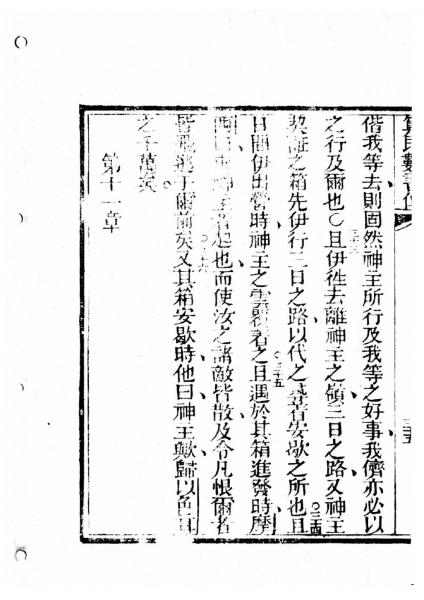 偕我等去則固然神主所行及我等之好事我儕亦必以
之行及爾也○三十三且伊徃去離神主之嶺三日之路又神主
契證之箱先伊行三日之路以代之尋着安歇之所也○三四且
日間伊出營時神主之雲覆着之○三十五且遇於其箱進發時摩
西曰神主起也而使汝之諸敵皆散及令凡恨爾者
皆飛逃于爾前矣○三十六又其箱安歇時他曰神主歟歸以色耳
之千萬矣
第十一章